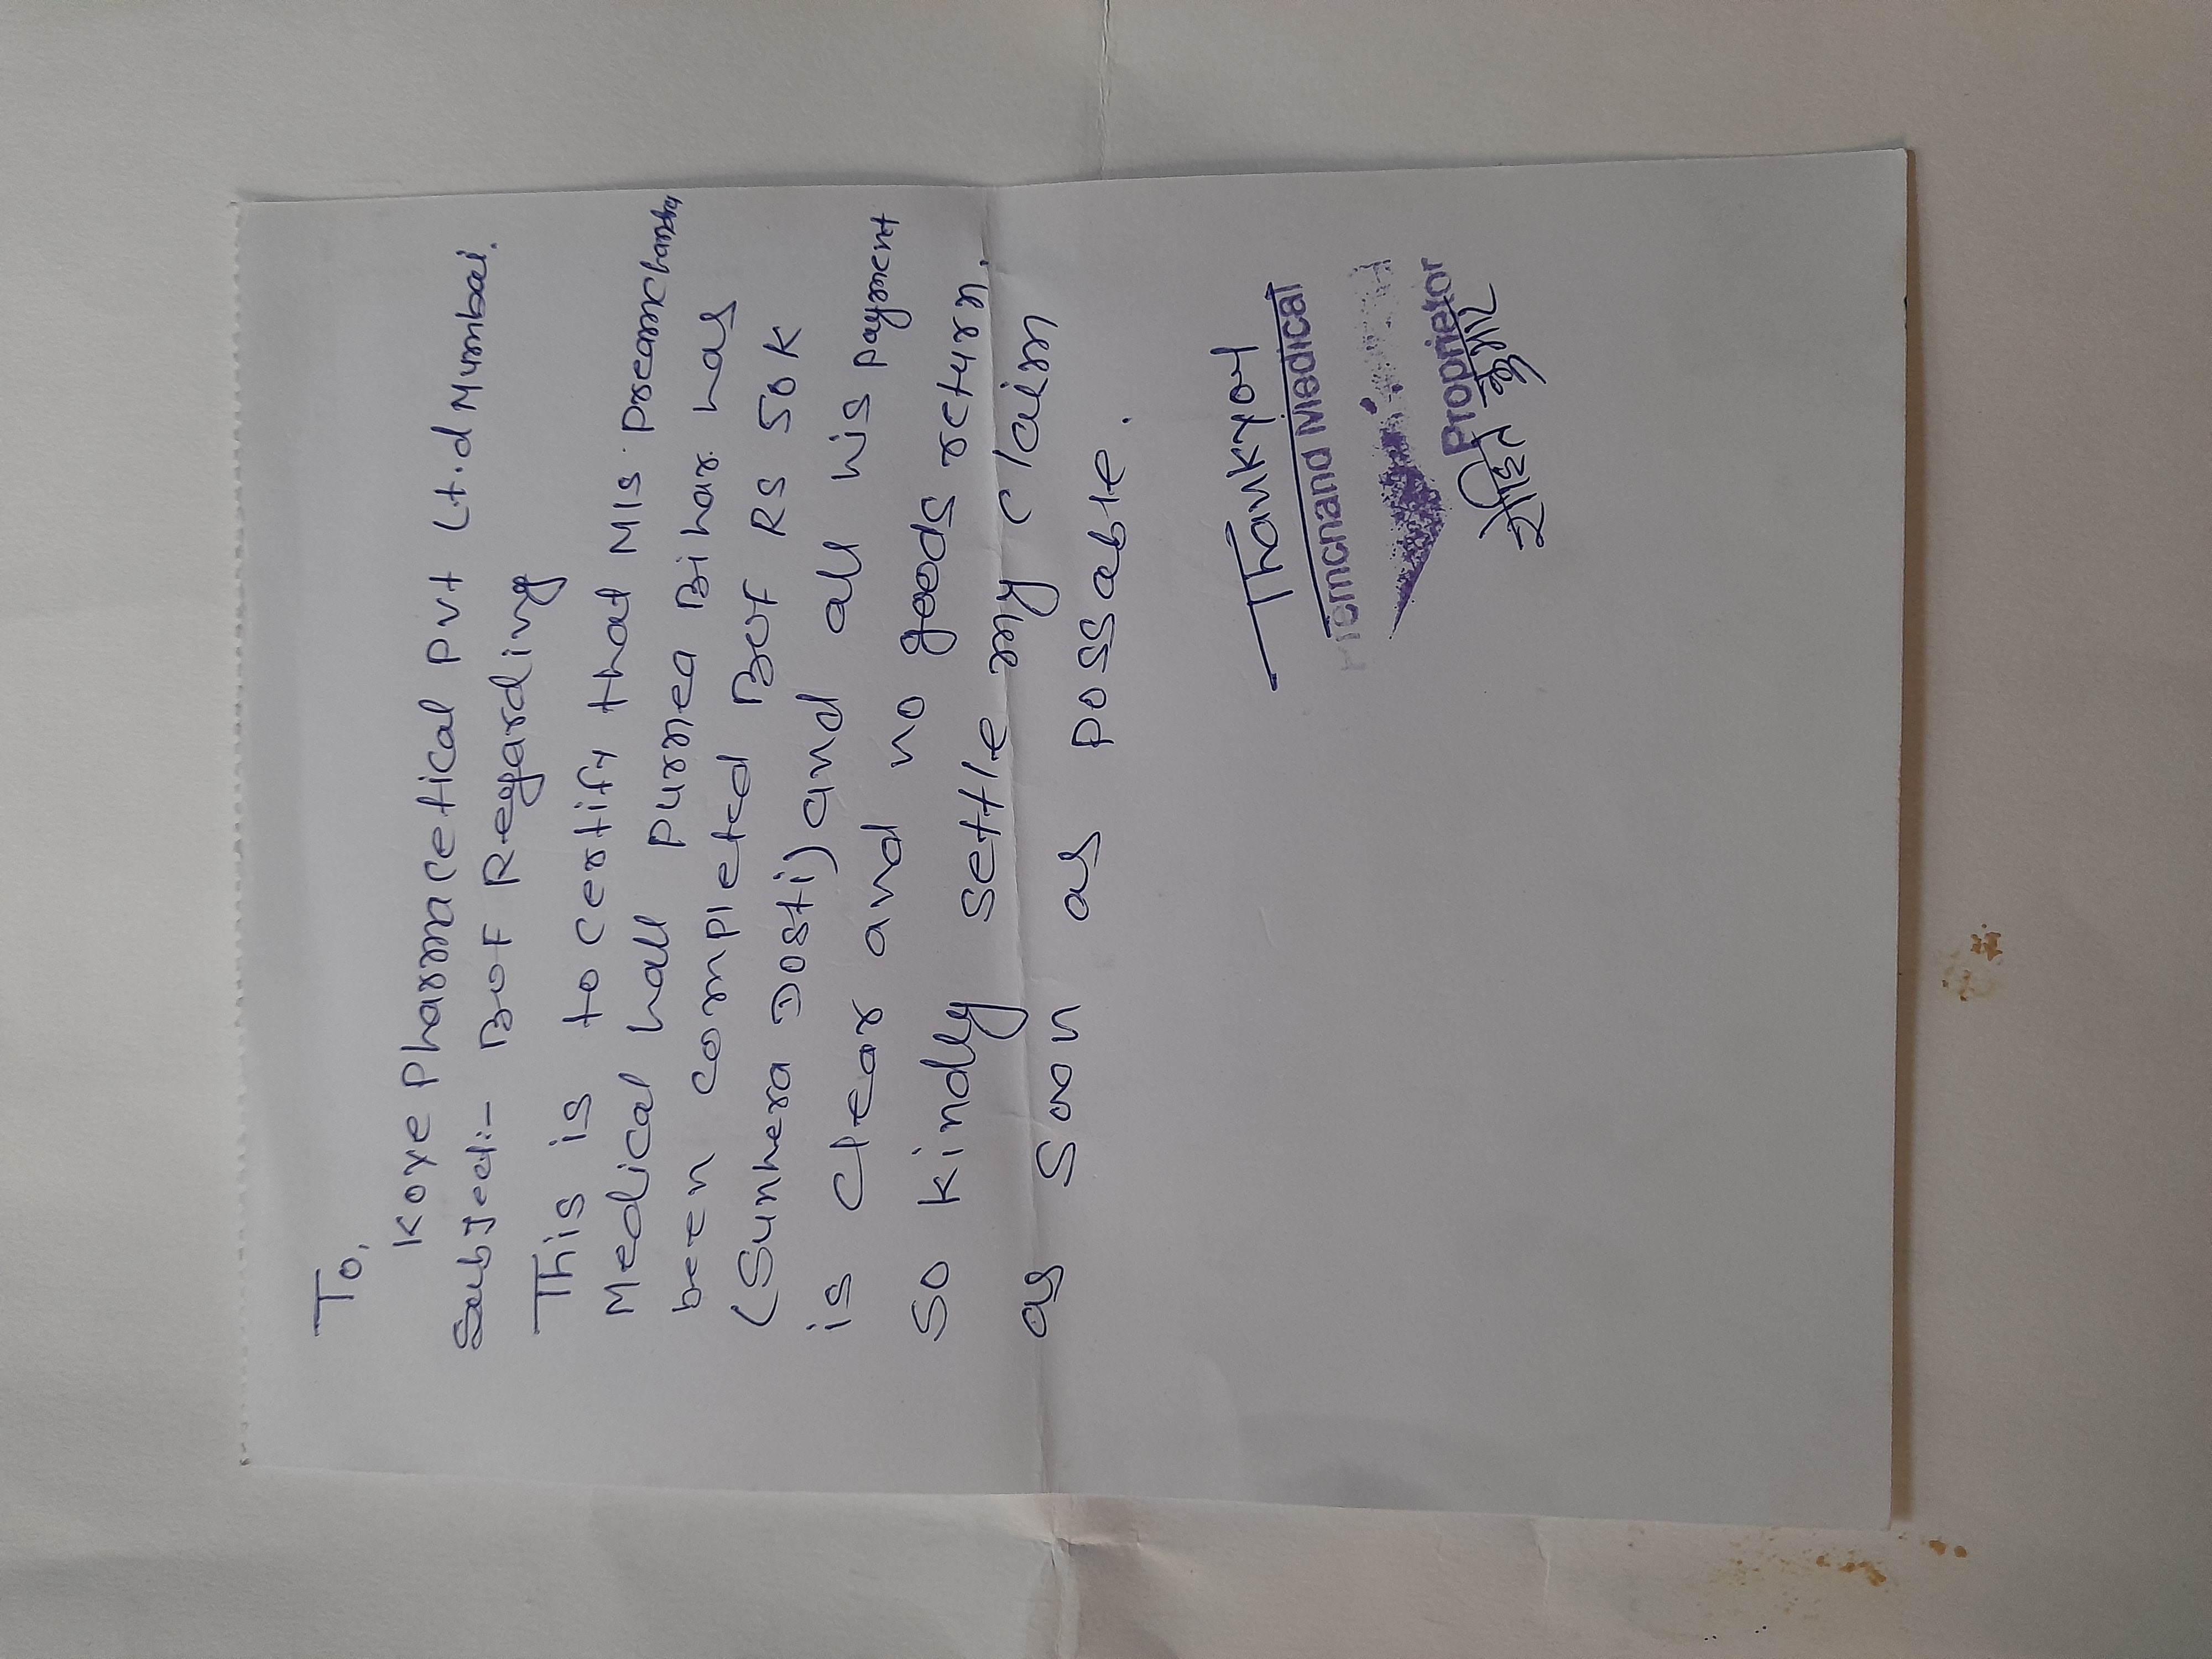 To,
Koye Pharmacetical Pvt Lt.d Mumbai.
Subject:- BOF Regarding
This is to certify that M/s. Premchandra
Medical hall Purnea Bihar has
been completed BOF RS 50K
(Sunhera Dosti) and all his payment
is clear and no goods return.
so kindly settle my claim
as soon as possable.
Thankyou
Premchand Medical
Proprietor